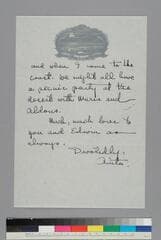 and when I come to the
coast. We might all have
a picnic party at the
desert with Maria and
Aldous.
Much, much love to
you and Edwin as
always.
Devotedly,
Anita.